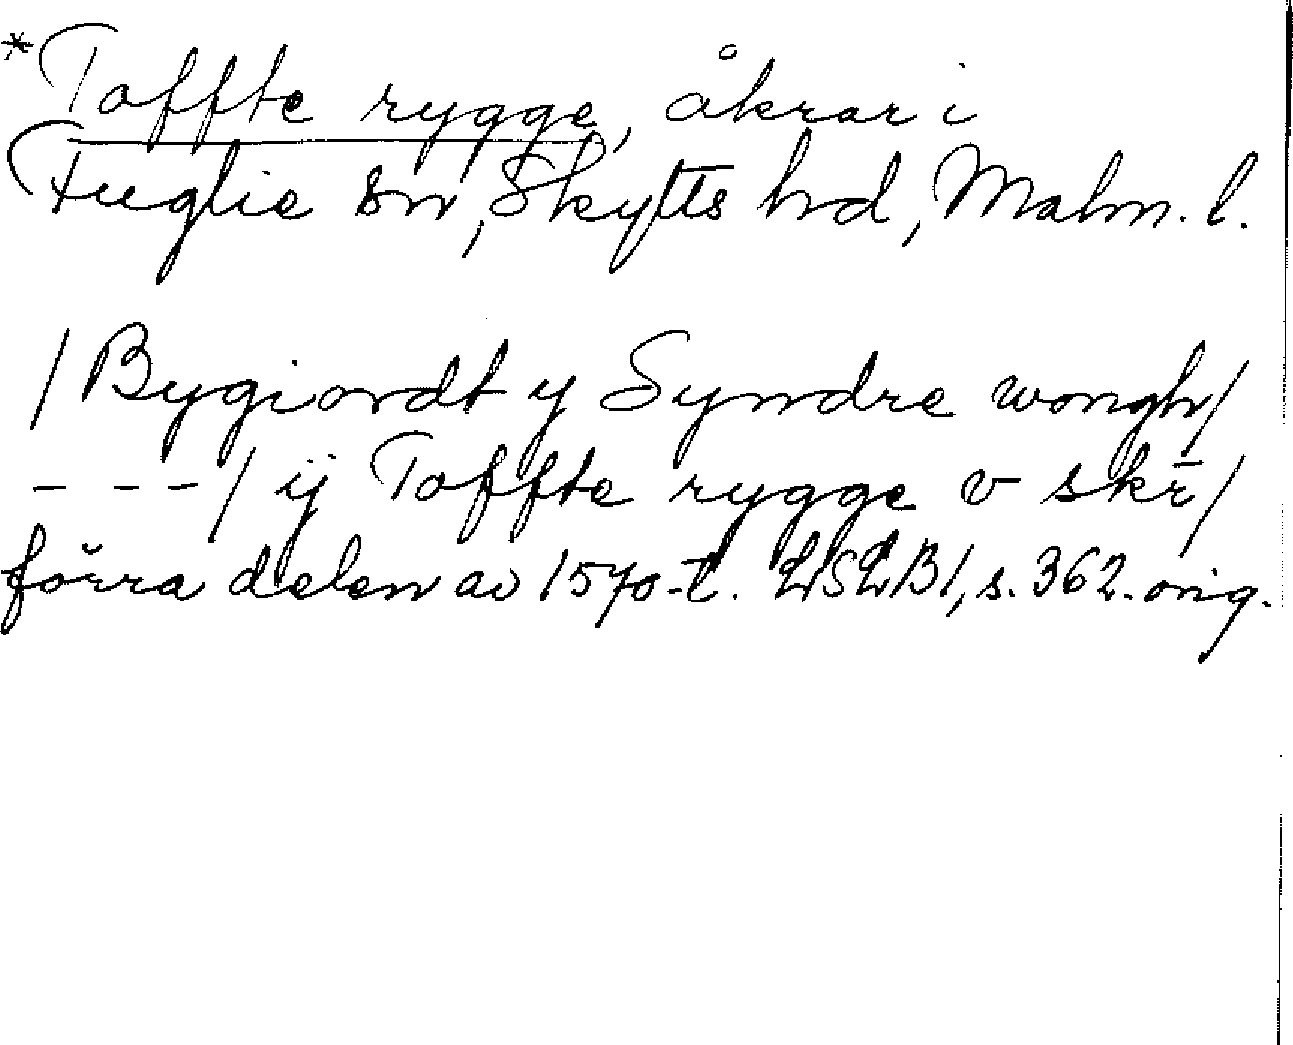 *Toffte rygge, åkrar i
Fuglie sn, Skytts hd, Malm. l.
/Bygiordt y Syndre wongh/
---/ ij Toffte rygge v skr̄/
förra delen av 1570-t. LSLB1, s. 362. orig.